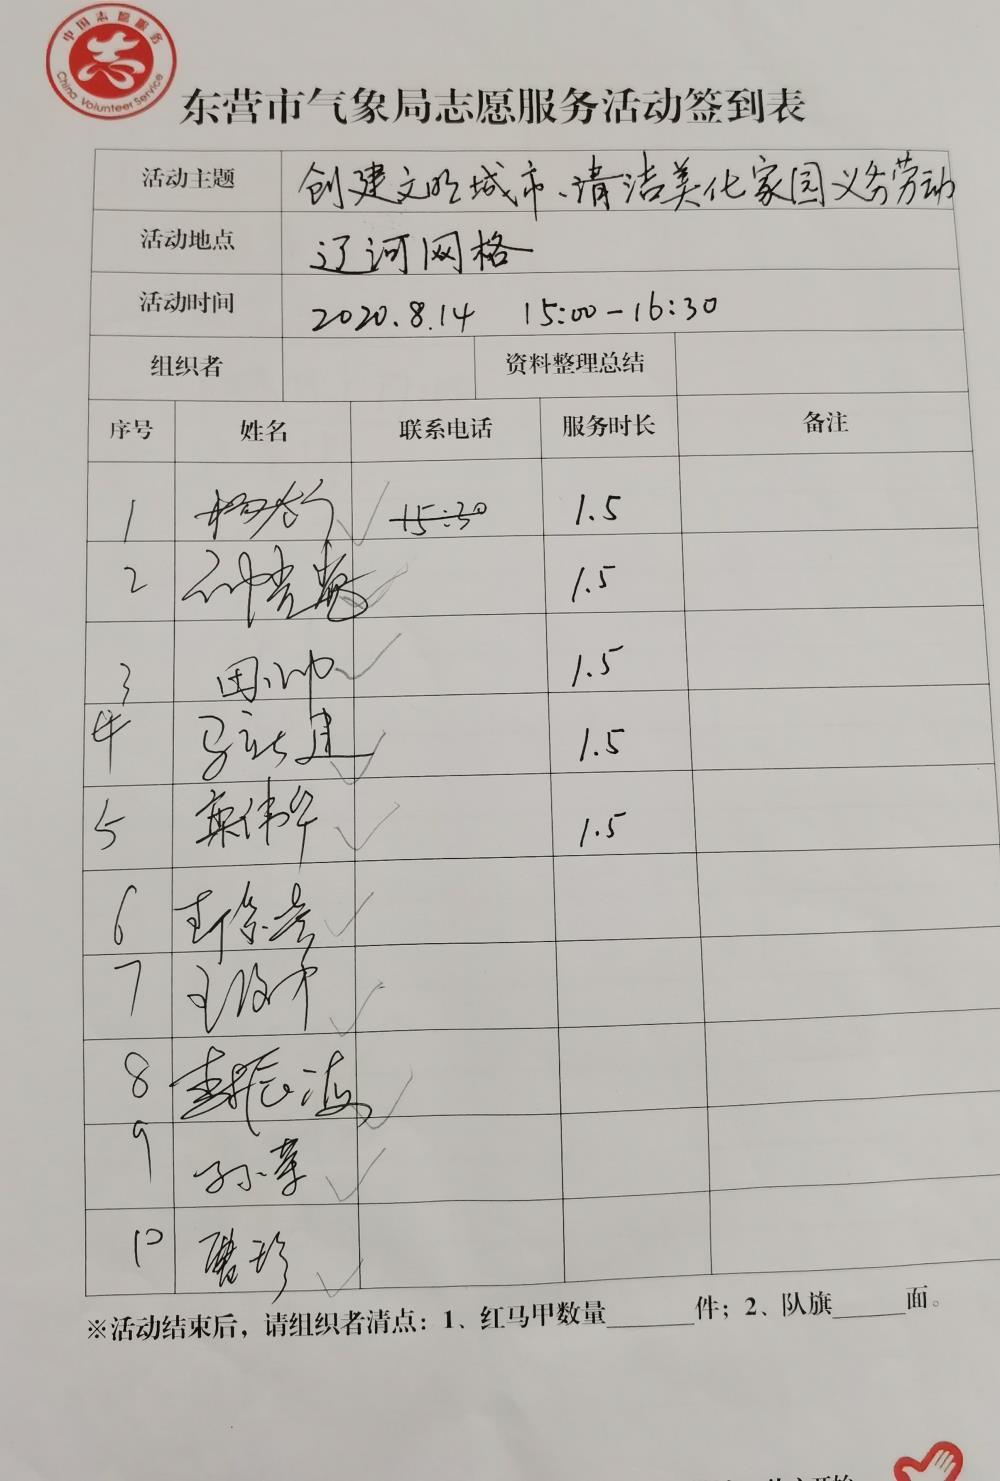 中国志愿服务
China Volunteer Service
东营市气象局志愿服务活动签到表
活动主题 创建文明城市、清洁美化家园义务劳动
活动地点 辽河网格
活动时间 2020.8.14 15:00-16:30
组织者 资料整理总结
序号 姓名 联系电话 服务时长 备注
1 15:30 1.5
2 1.5
3 田小帅 1.5
4 马新建 1.5
5 1.5
6
7
8
9
10
※活动结束后，请组织者清点：1、红马甲数量______件；2、队旗_____面。